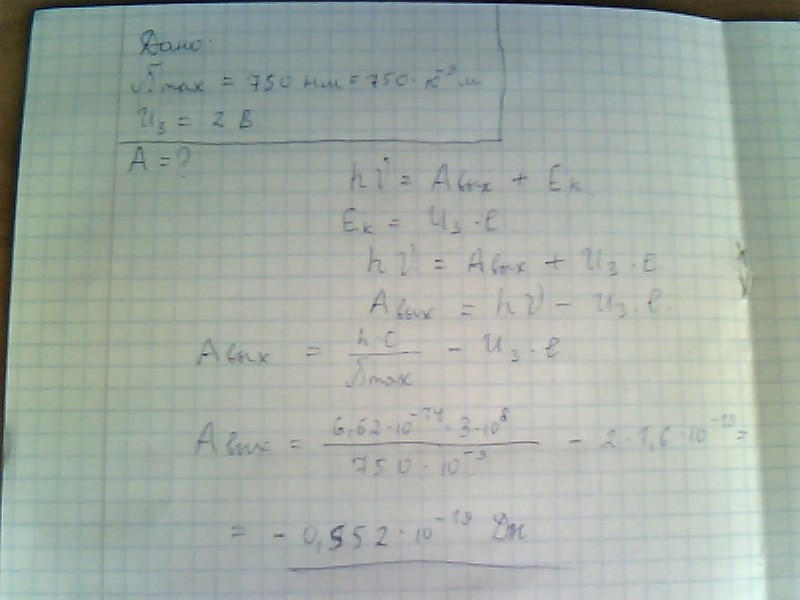 Дано:
λmax = 750 нм = 750·10⁻⁹ м
U₃ = 2 В
A = ?
hν = Aвых + Eк
Eк = U₃·e
hν = Aвых + U₃·e
Aвых = hν − U₃·e
Aвых = h·c / λmax − U₃·e
Aвых = 6,62·10⁻³⁴·3·10⁸ / 750·10⁻⁹ − 2·1,6·10⁻¹⁹ =
= − 0,552·10⁻¹⁹ Дж